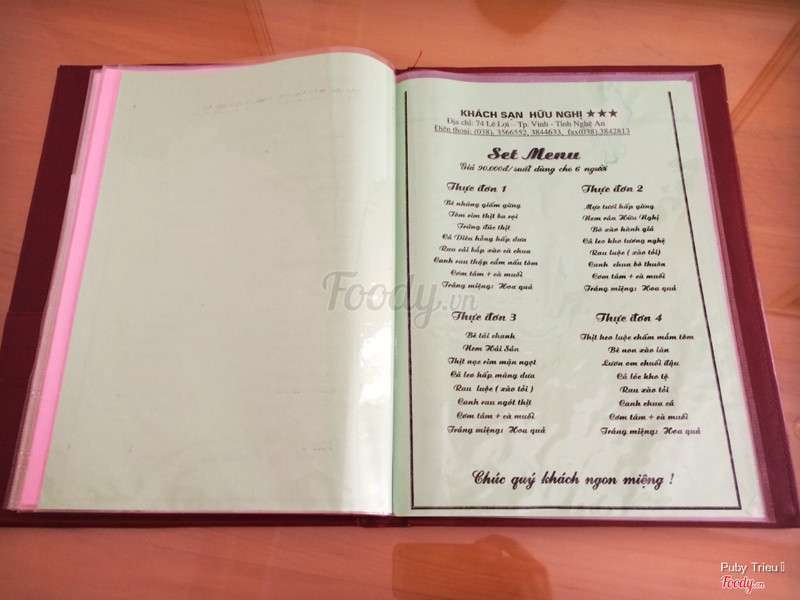 KHÁCH SẠN HỮU NGHỊ ★★★
Địa chỉ: 74 Lê Lợi – Tp. Vinh - Tỉnh Nghệ An
Điện thoại: (038). 3566552, 3844633, fax(038).3842813
Set Menu
Giá 90.000đ/suất dùng cho 6 người
Thực đơn 1
Bê nhúng giấm gừng
Tôm rim thịt ba rọi
Trứng đúc thịt
Cá Diêu hồng hấp dưa
Rau cải bắp xào cà chua
Canh rau thập cẩm nấu tôm
Cơm tám + cà muối
Tráng miệng: Hoa quả
Thực đơn 2
Mực tươi hấp gừng
Nem rán Hữu Nghị
Bò xào hành giá
Cá leo kho tương nghệ
Rau luộc ( xào tỏi)
Canh chua bò thuôn
Cơm tám + cà muối
Tráng miệng: Hoa quả
Thực đơn 3
Bê tái chanh
Nem Hải Sản
Thịt nạc rim mặn ngọt
Cá leo hấp măng dưa
Rau luộc ( xào tỏi )
Canh rau ngót thịt
Cơm tám + cà muối
Tráng miệng: Hoa quả
Thực đơn 4
Thịt heo luộc chấm mắm tôm
Bê non xào lăn
Lươn om chuối đậu
Cá lóc kho tộ
Rau xào tỏi
Canh chua cá
Cơm tám + cà muối
Tráng miệng: Hoa quả
Chúc quý khách ngon miệng !
Foody.vn
Puby Trieu
Foody.vn